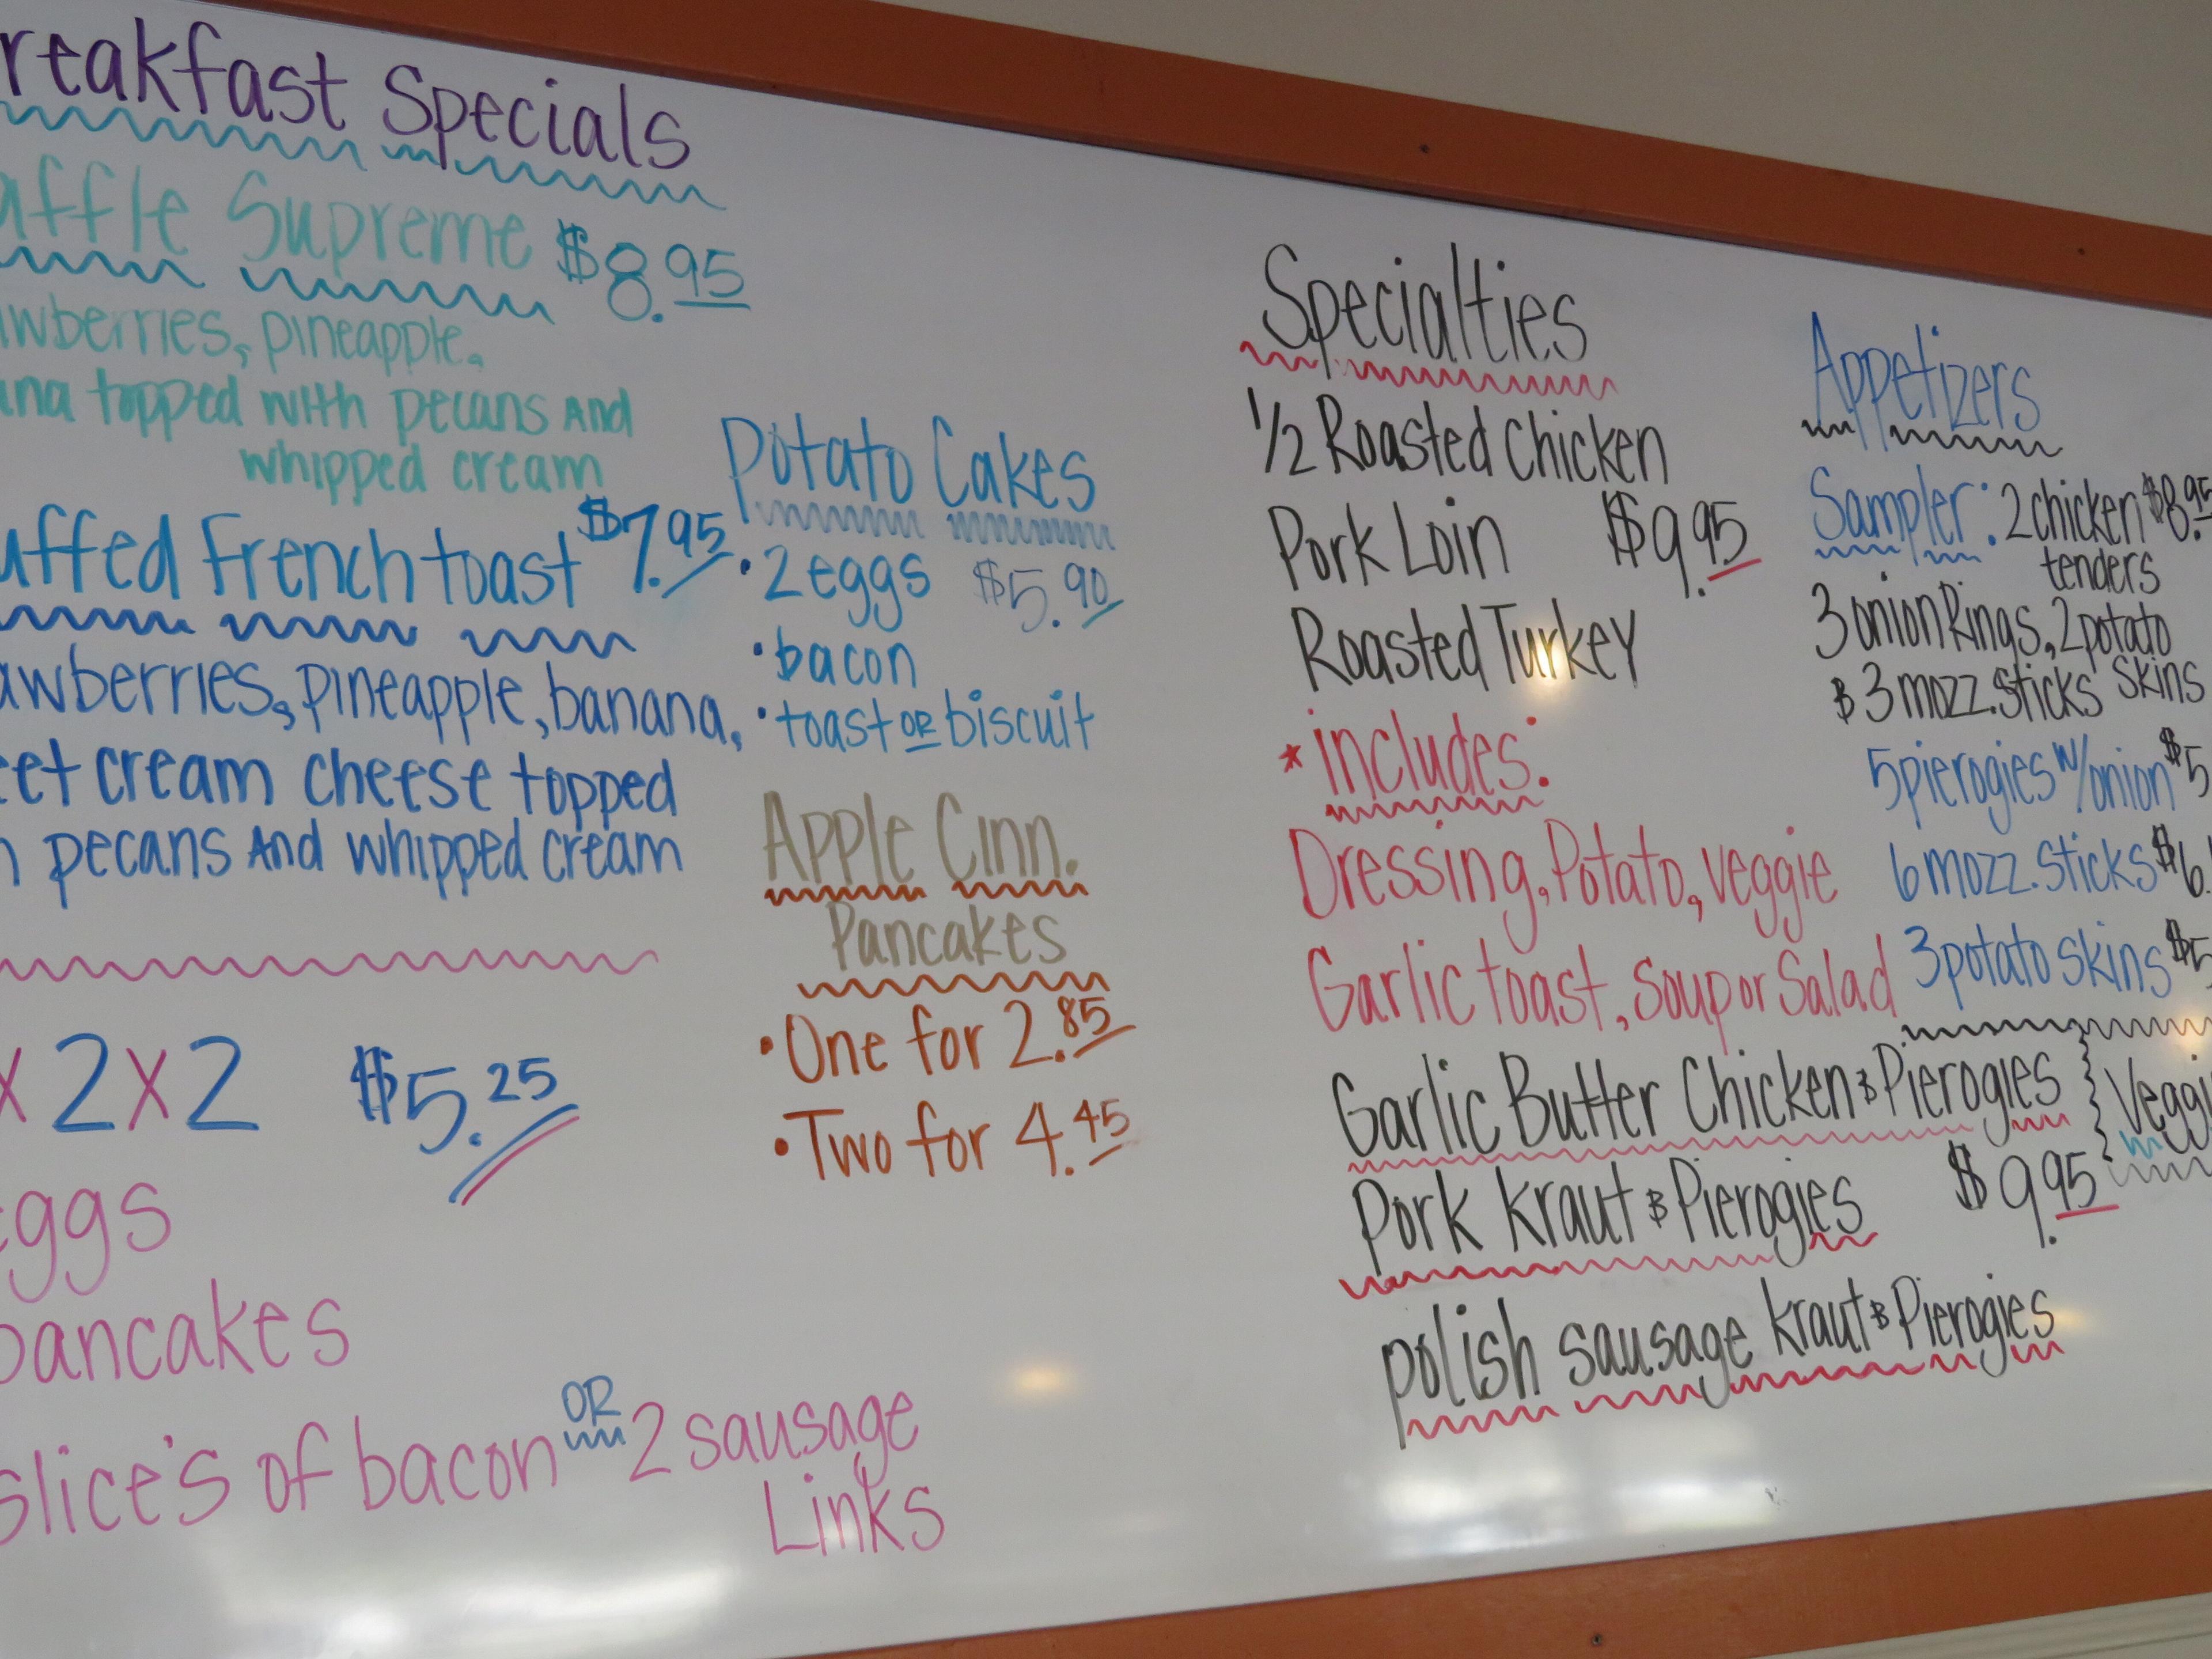 reakfast Specials
affle Supreme $8.95
awberries, pineapple,
ana topped with pecans And
whipped cream
uffed French toast $7.95
awberries, pineapple, banana,
eet cream cheese topped
h pecans And whipped cream
x 2 x 2 $5.25
eggs
pancakes
slice's of bacon OR 2 sausage
Links
Potato Cakes
• 2 eggs $5.90
• bacon
• toast or biscuit
Apple Cinn.
Pancakes
• One for 2.85
• Two for 4.45
Specialties
1/2 Roasted Chicken
Pork Loin $9.95
Roasted Turkey
* includes:
Dressing, Potato, veggie
Garlic toast, soup or Salad
Garlic Butter Chicken & Pierogies
Pork kraut & Pierogies $9.95
polish sausage kraut & Pierogies
Appetizers
Sampler: 2 chicken $8.95
tenders
3 onion Rings, 2 potato
& 3 mozz. sticks skins
5 pierogies w/onion $5
6 mozz. sticks $6.
3 potato skins $5
Veggi